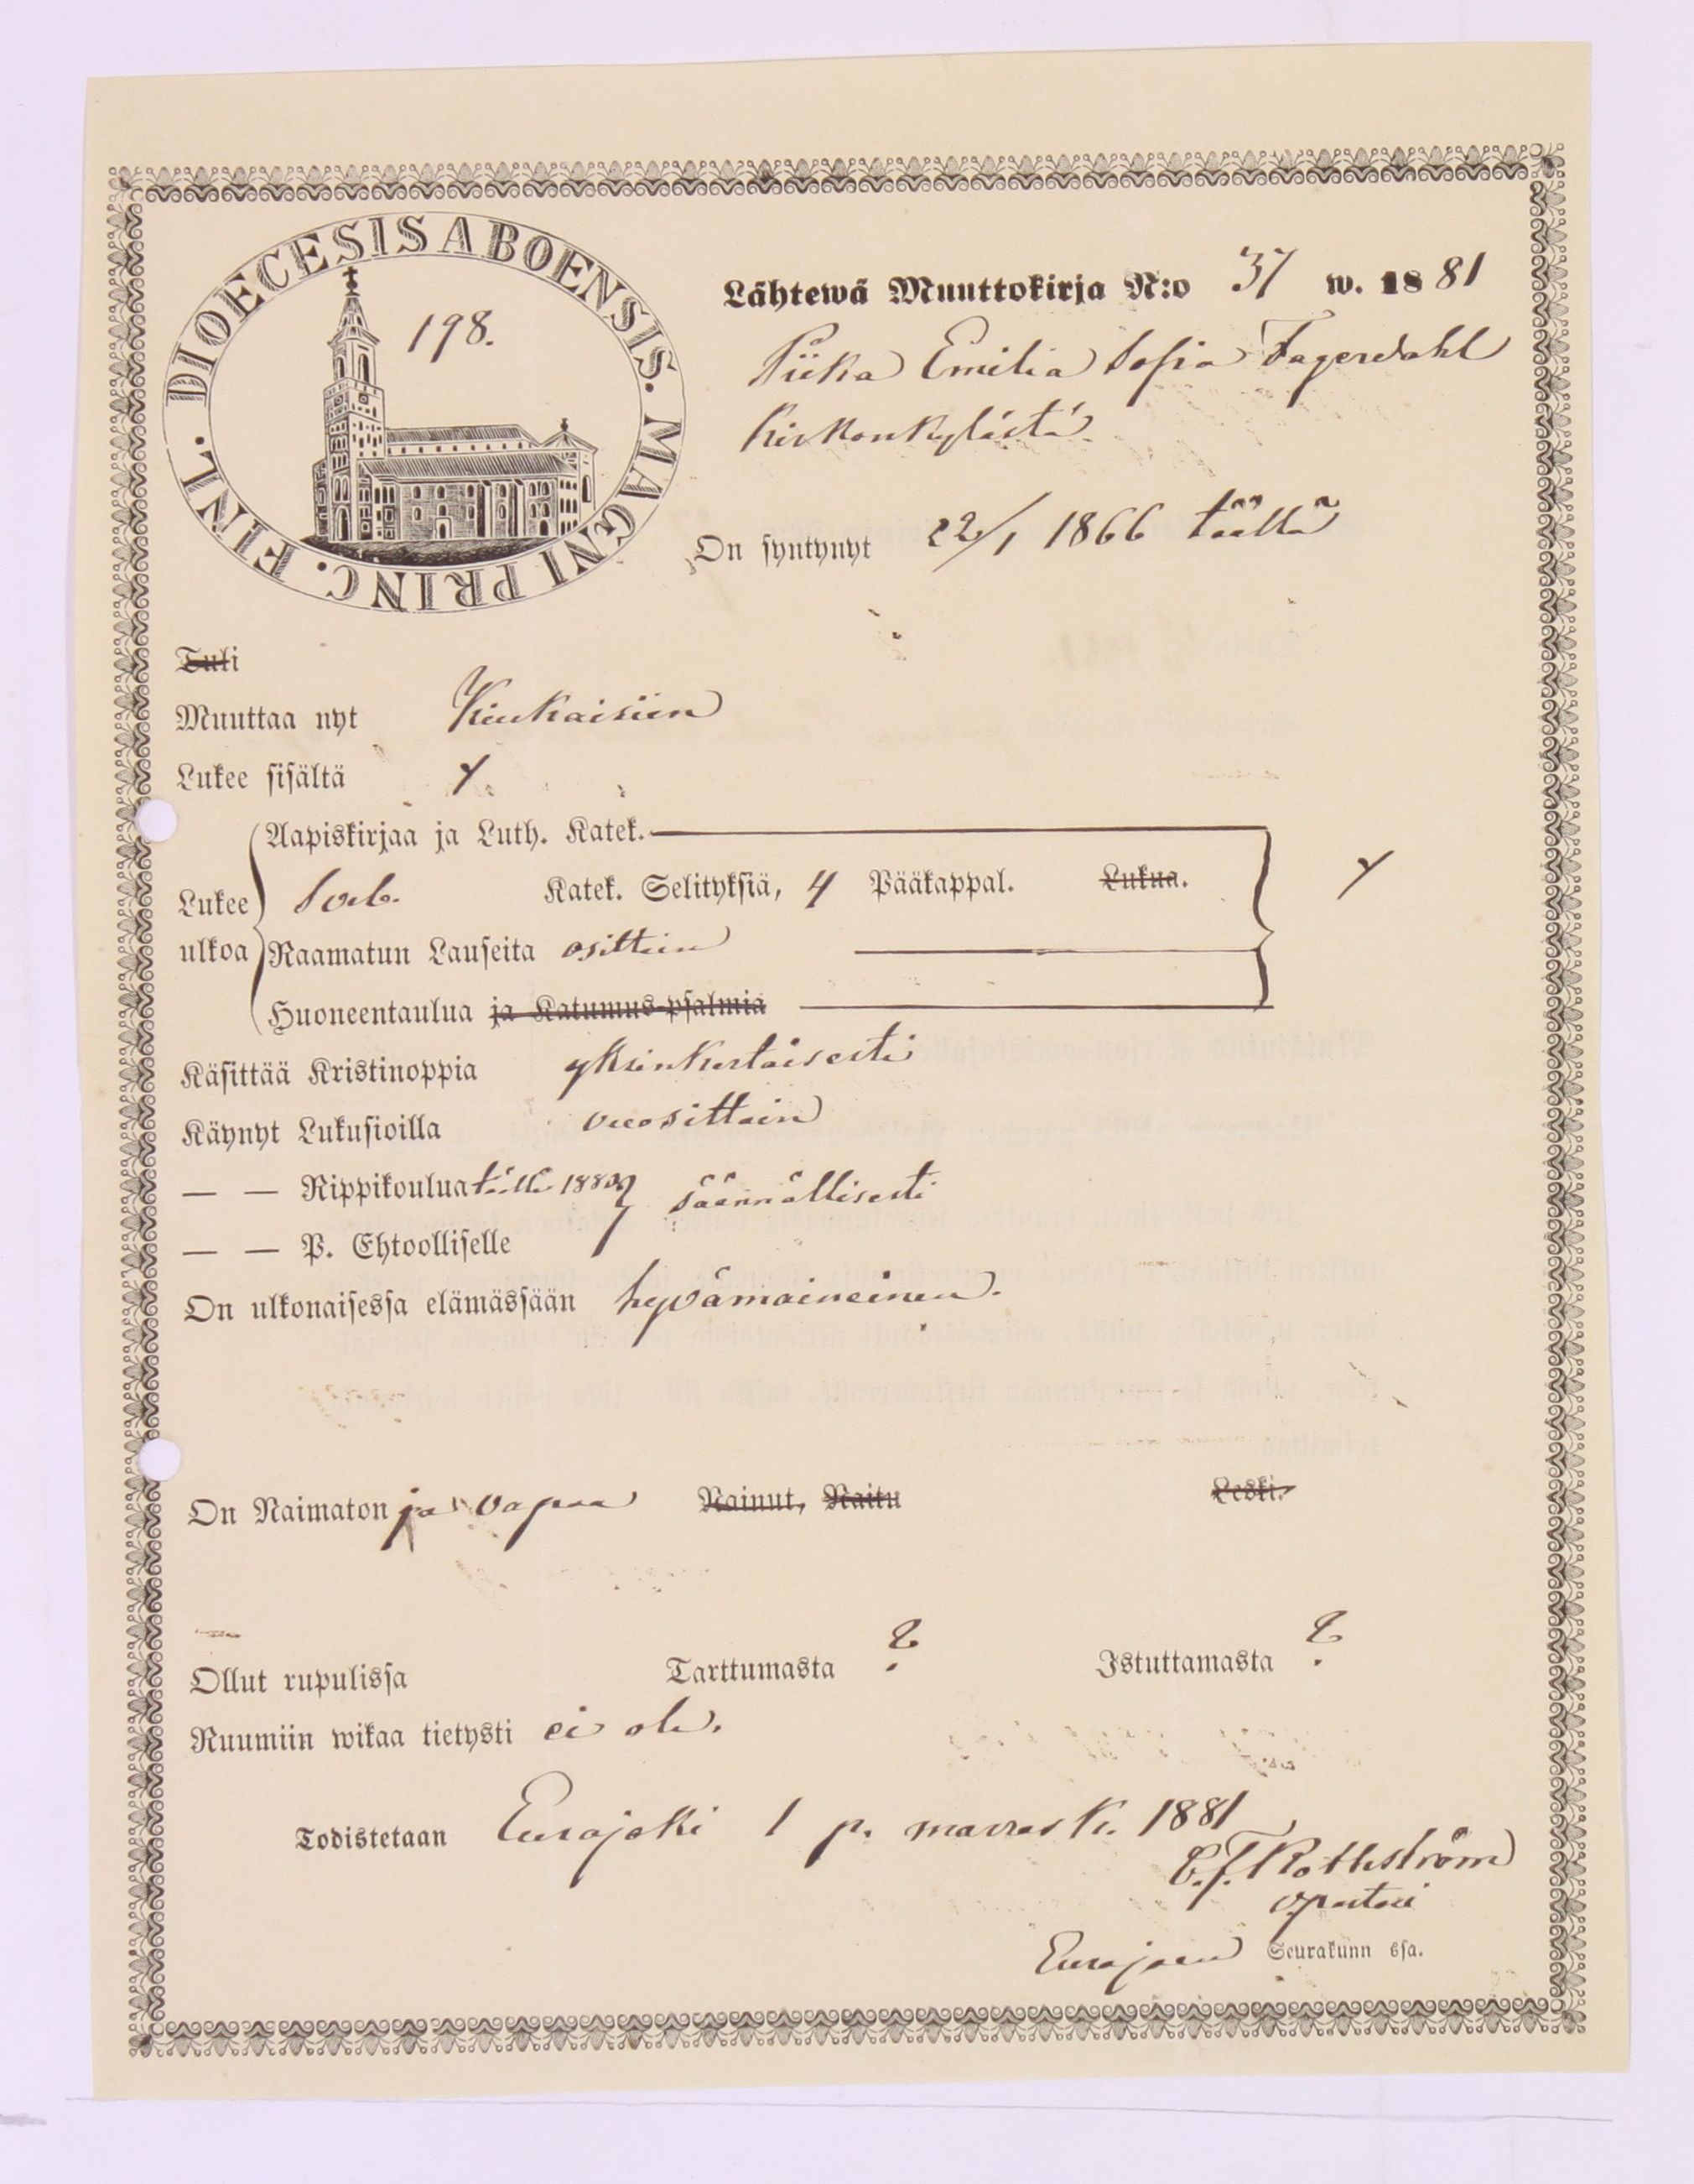 DIOECESIS ABOENSIS. MAGNI PRINC. FINL.
198.
Lähtewä Muuttokirja N:o 37 w. 1881
Piika Emilia Sofia Fagerdahl
Kirkonkylästä
On syntynyt 22/1 1866 täällä
Tuli
Muuttaa nyt Kiukaisiin
Lukee sisältä
Aapiskirjaa ja Luth. Katek.
Lukee Sveb. Katek. Selityksiä, 4 Pääkappal. Lukua.
ulkoa Raamatun Lauseita osittain
Huoneentaulua ja Katumus-psalmia
Käsittää Kristinoppia yksinkertaisesti
Käynyt Lukusioilla vuosittain
— — Rippikoulua täällä säännöllisesti
— — P. Ehtoolliselle
On ulkonaisessa elämässään hyvämaineinen.
On Naimaton ja vapaa Nainut, Naitu Leski.
Ollut rupulissa Tarttumasta ? Istuttamasta ?
Ruumiin wikaa tietysti ei ole.
Todistetaan Eurajoki 1 p. marrask. 1881
Rothström
Eurajoen Seurakunn ssa.